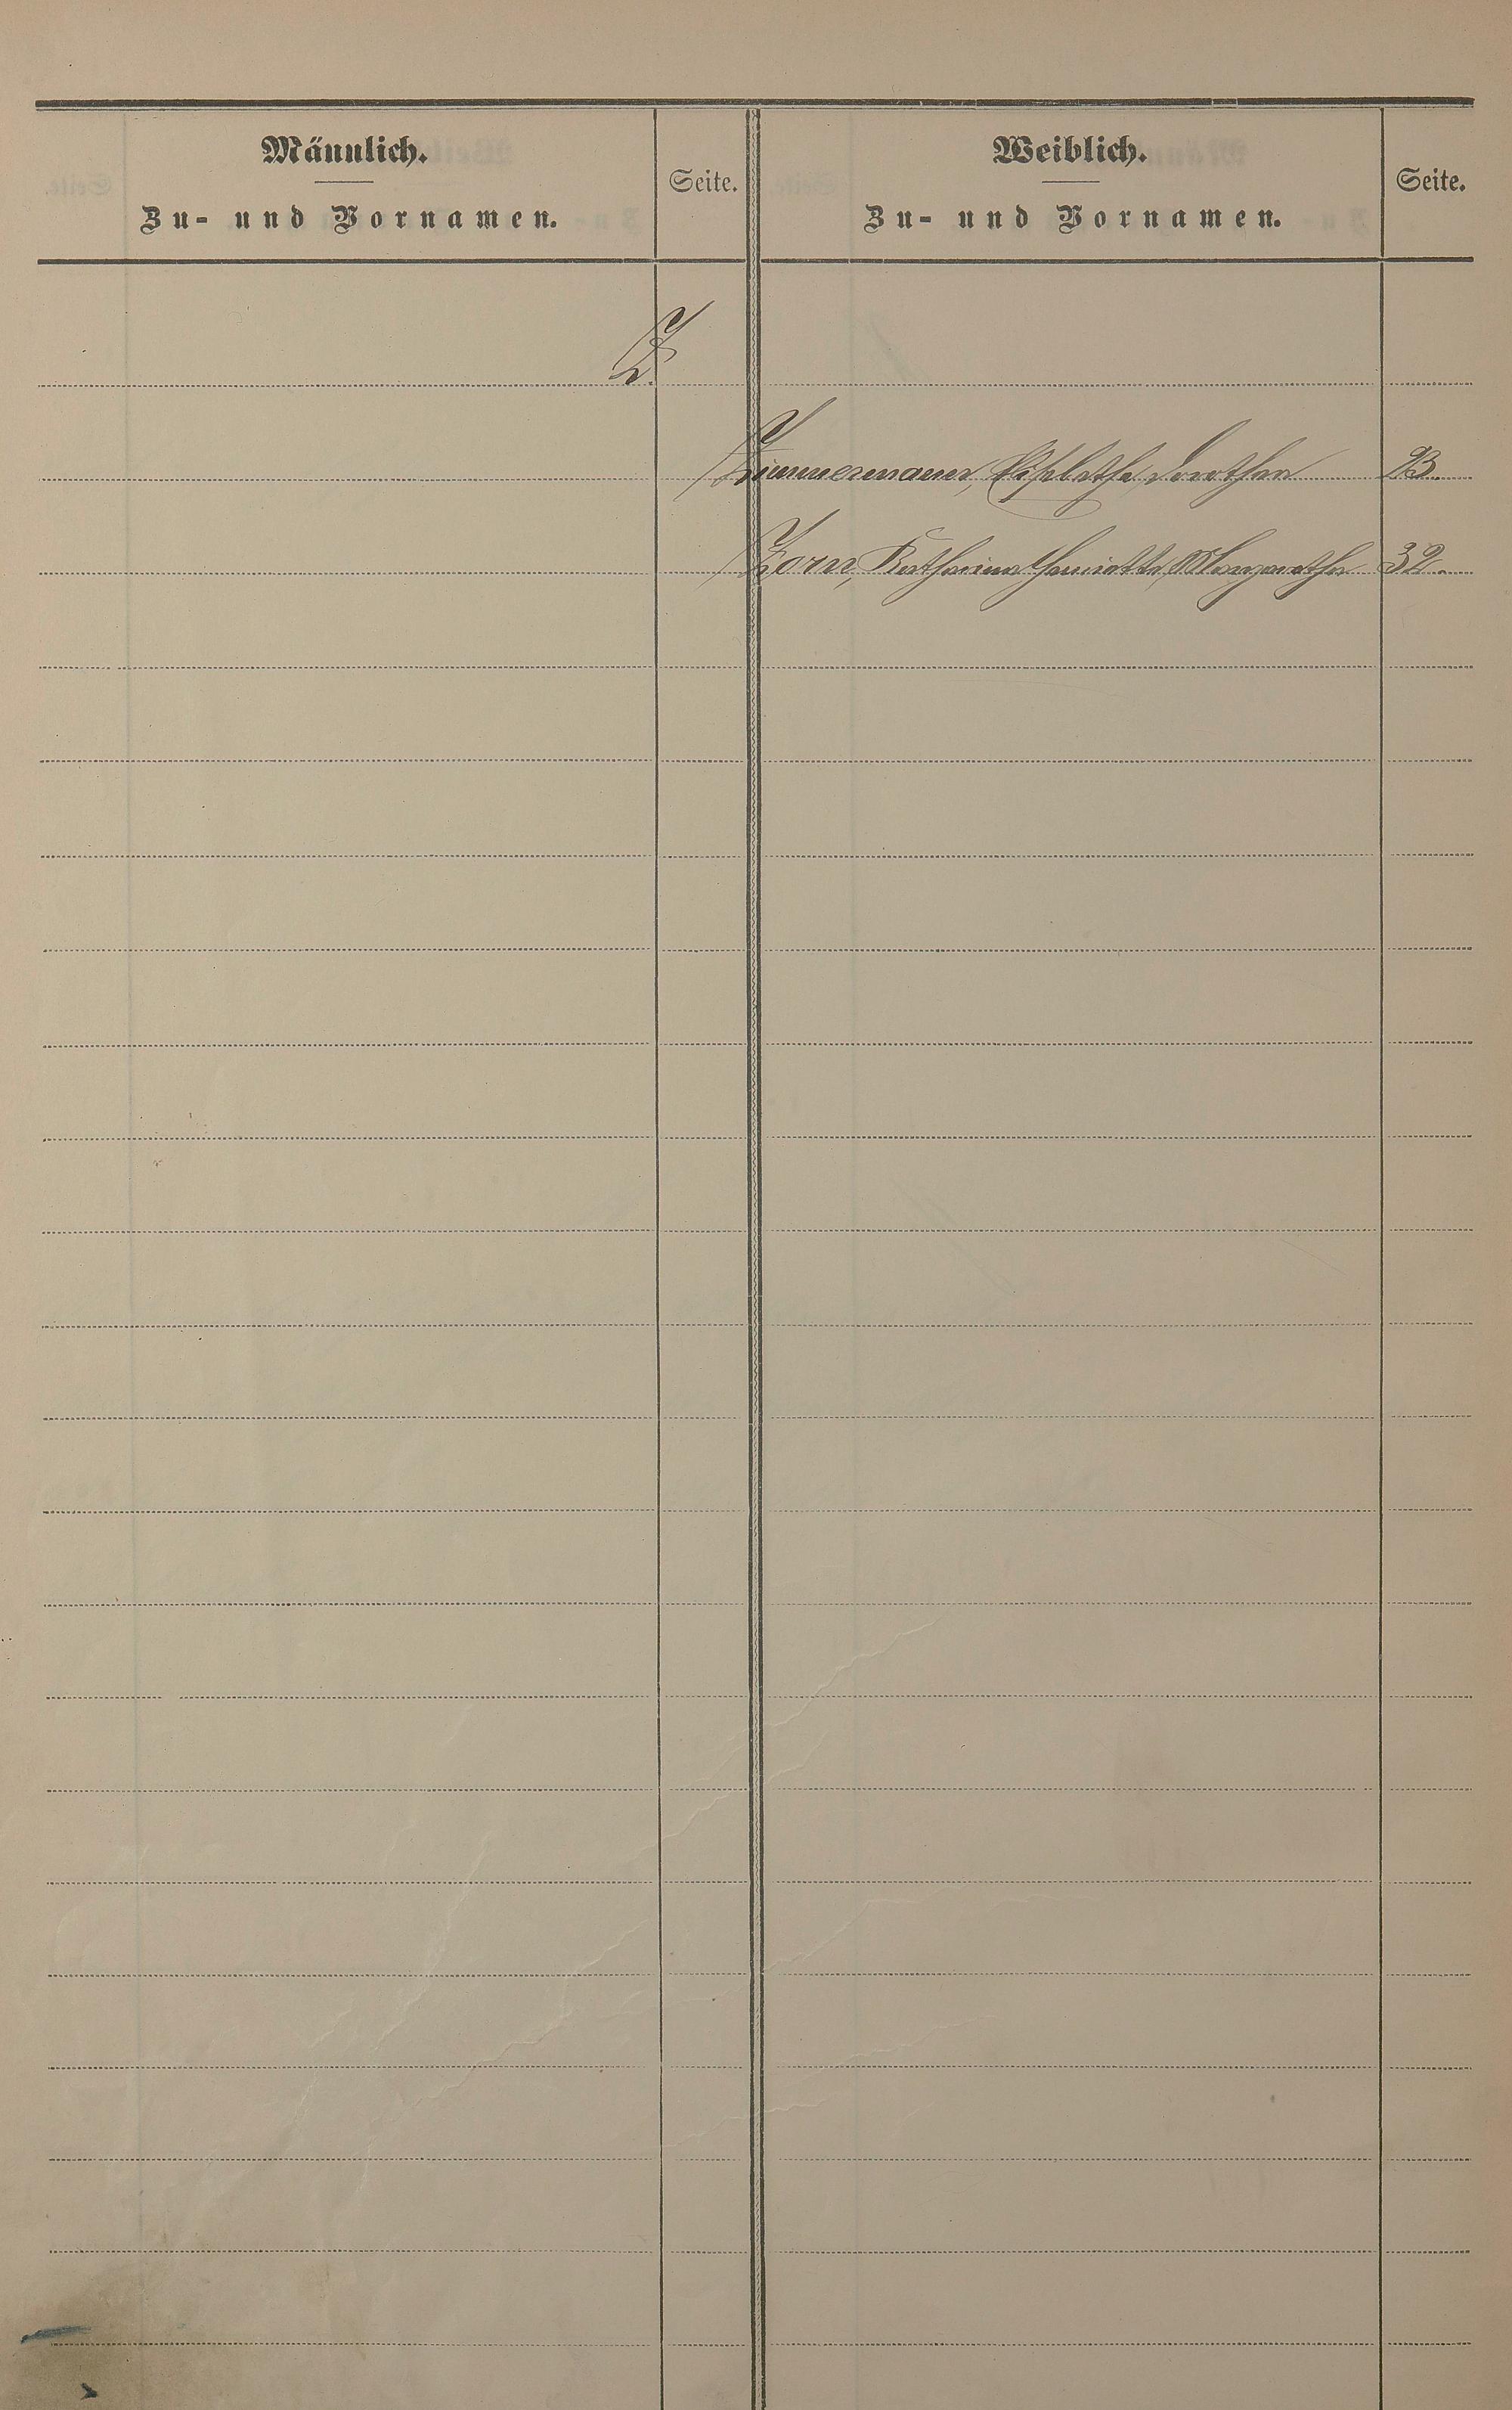 Männlich.
Zu- und Vornamen.
Seite.
Weiblich.
Zu- und Vornamen.
Seite.
Z.
Zimmermann, Elisabetha, Dorothea 23.
Zorn, Katharina Henriette, Margaretha 32.